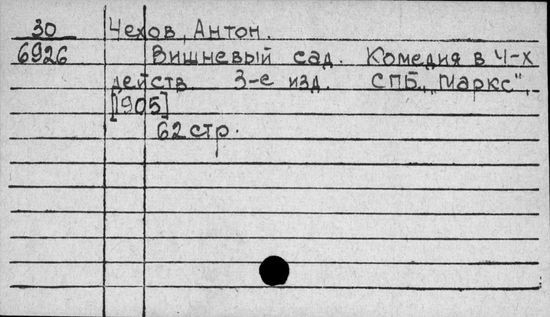 30 Чехов, Антон.
6926 Вишневый сад. Комедия в 4-х
действ. 3-е изд. СПБ., "Маркс",
[1905]
62 стр.